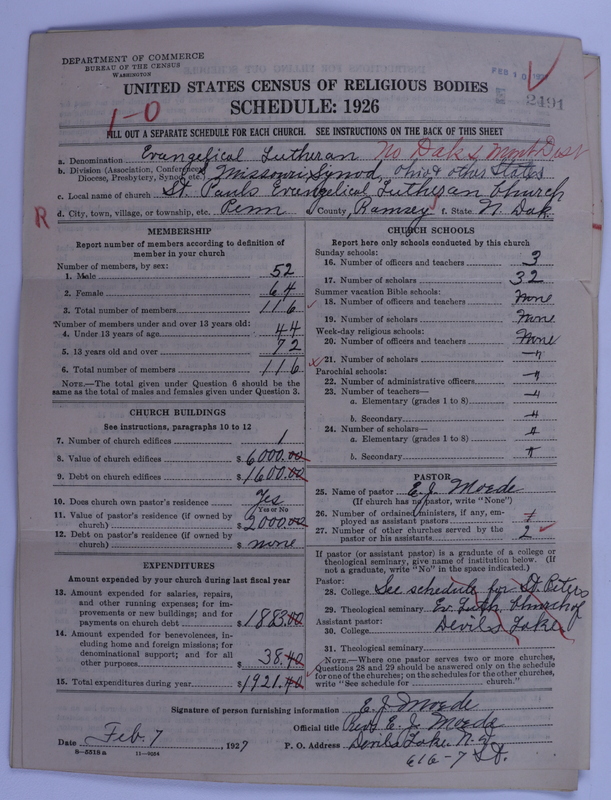 DEPARTMENT OF COMMERCE
BUREAU OF THE CENSUS
WASHINGTON
FEB 10 1927
2491
UNITED STATES CENSUS OF RELIGIOUS BODIES
SCHEDULE: 1926
1-0
FILL OUT A SEPARATE SCHEDULE FOR EACH CHURCH. SEE INSTRUCTIONS ON THE BACK OF THIS SHEET
a. Denomination Evangelical Lutheran No Dak & Mont Dist
b. Division (Association, Conference, Diocese, Presbytery, Synod, etc.) Missouri Synod, Ohio & other States
c. Local name of church St. Pauls Evangelical Lutheran Church
R d. City, town, village, or township, etc. Penn e. County, Ramsey f. State N. Dak.
MEMBERSHIP
Report number of members according to definition of
member in your church
Number of members, by sex:
1. Male 52
2. Female 64
3. Total number of members 116
Number of members under and over 13 years old:
4. Under 13 years of age 44
5. 13 years old and over 72
6. Total number of members 116
NOTE.—The total given under Question 6 should be the
same as the total of males and females given under Question 3.
CHURCH BUILDINGS
See instructions, paragraphs 10 to 12
7. Number of church edifices 1
8. Value of church edifices $ 6000.00
9. Debt on church edifices $ 1600.00
10. Does church own pastor's residence Yes
Yes or No
11. Value of pastor's residence (if owned by
church) $ 2000.00
12. Debt on pastor's residence (if owned by
church) $ none
EXPENDITURES
Amount expended by your church during last fiscal year
13. Amount expended for salaries, repairs,
and other running expenses; for im-
provements or new buildings; and for
payments on church debt $ 1883.00
14. Amount expended for benevolences, in-
cluding home and foreign missions; for
denominational support; and for all
other purposes $ 38.40
15. Total expenditures during year $ 1921.40
CHURCH SCHOOLS
Report here only schools conducted by this church
Sunday schools:
16. Number of officers and teachers 3
17. Number of scholars 32
Summer vacation Bible schools:
18. Number of officers and teachers None
19. Number of scholars None
Week-day religious schools:
20. Number of officers and teachers None
21. Number of scholars —"—
Parochial schools:
22. Number of administrative officers "
23. Number of teachers—
a. Elementary (grades 1 to 8) "
b. Secondary "
24. Number of scholars—
a. Elementary (grades 1 to 8) "
b. Secondary "
PASTOR
25. Name of pastor E. J. Moede
(If church has no pastor, write "None")
26. Number of ordained ministers, if any, em-
ployed as assistant pastors
27. Number of other churches served by the
pastor or his assistants 2
If pastor (or assistant pastor) is a graduate of a college or
theological seminary, give name of institution below. (If
not a graduate, write "No" in the space indicated.)
Pastor:
28. College See schedule for St. Peters
29. Theological seminary Ev. Luth. Church of
Assistant pastor:
30. College Devils Lake
31. Theological seminary
NOTE.—Where one pastor serves two or more churches,
Questions 28 and 29 should be answered only on the schedule
for one of the churches; on the schedules for the other churches,
write "See schedule for church."
Signature of person furnishing information E. J. Moede
Official title Rev. E. J. Moede
Date Feb. 7, 1927 P. O. Address Devils Lake. N. D.
616-7 St.
8—5518 a 11—9024